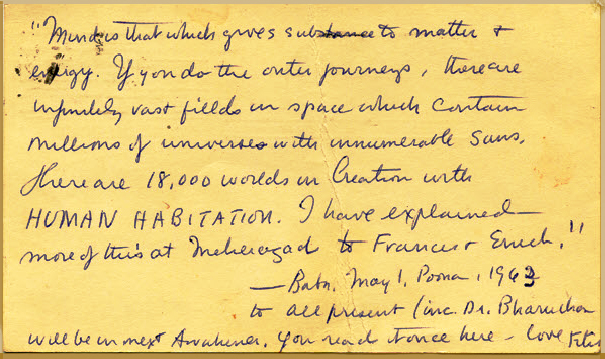 "Mind is that which gives substance to matter &
energy. If you do the outer journeys, there are
infinitely vast fields in space which contain
millions of universes with innumerable suns.
There are 18,000 worlds in Creation with
HUMAN HABITATION. I have explained
more of this at Meherazad to Francis & Eruch."
— Baba, May 1, Poona, 1963
to all present (inc. Dr. Bharucha
will be in next Awakener. You read it once here – love